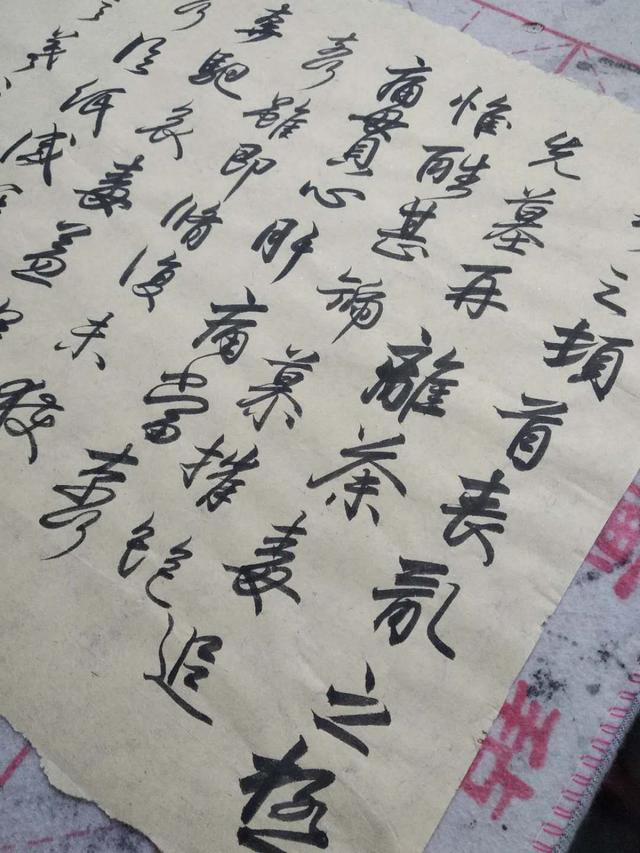 之頓首喪亂之極
先墓再離荼毒追
惟酷甚號慕摧絕
痛貫心肝痛當奈何
奈何雖即脩復未獲
奔馳哀毒益
臨紙感